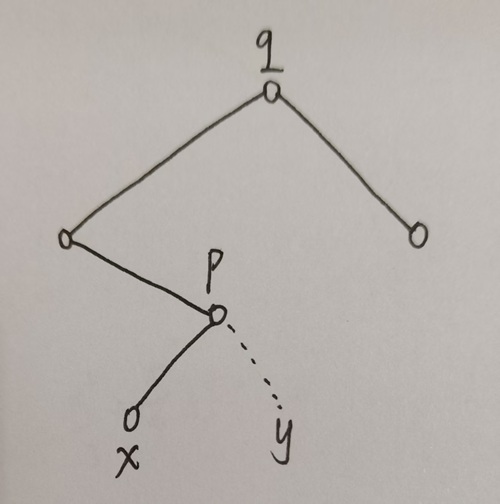 q
P
x
y